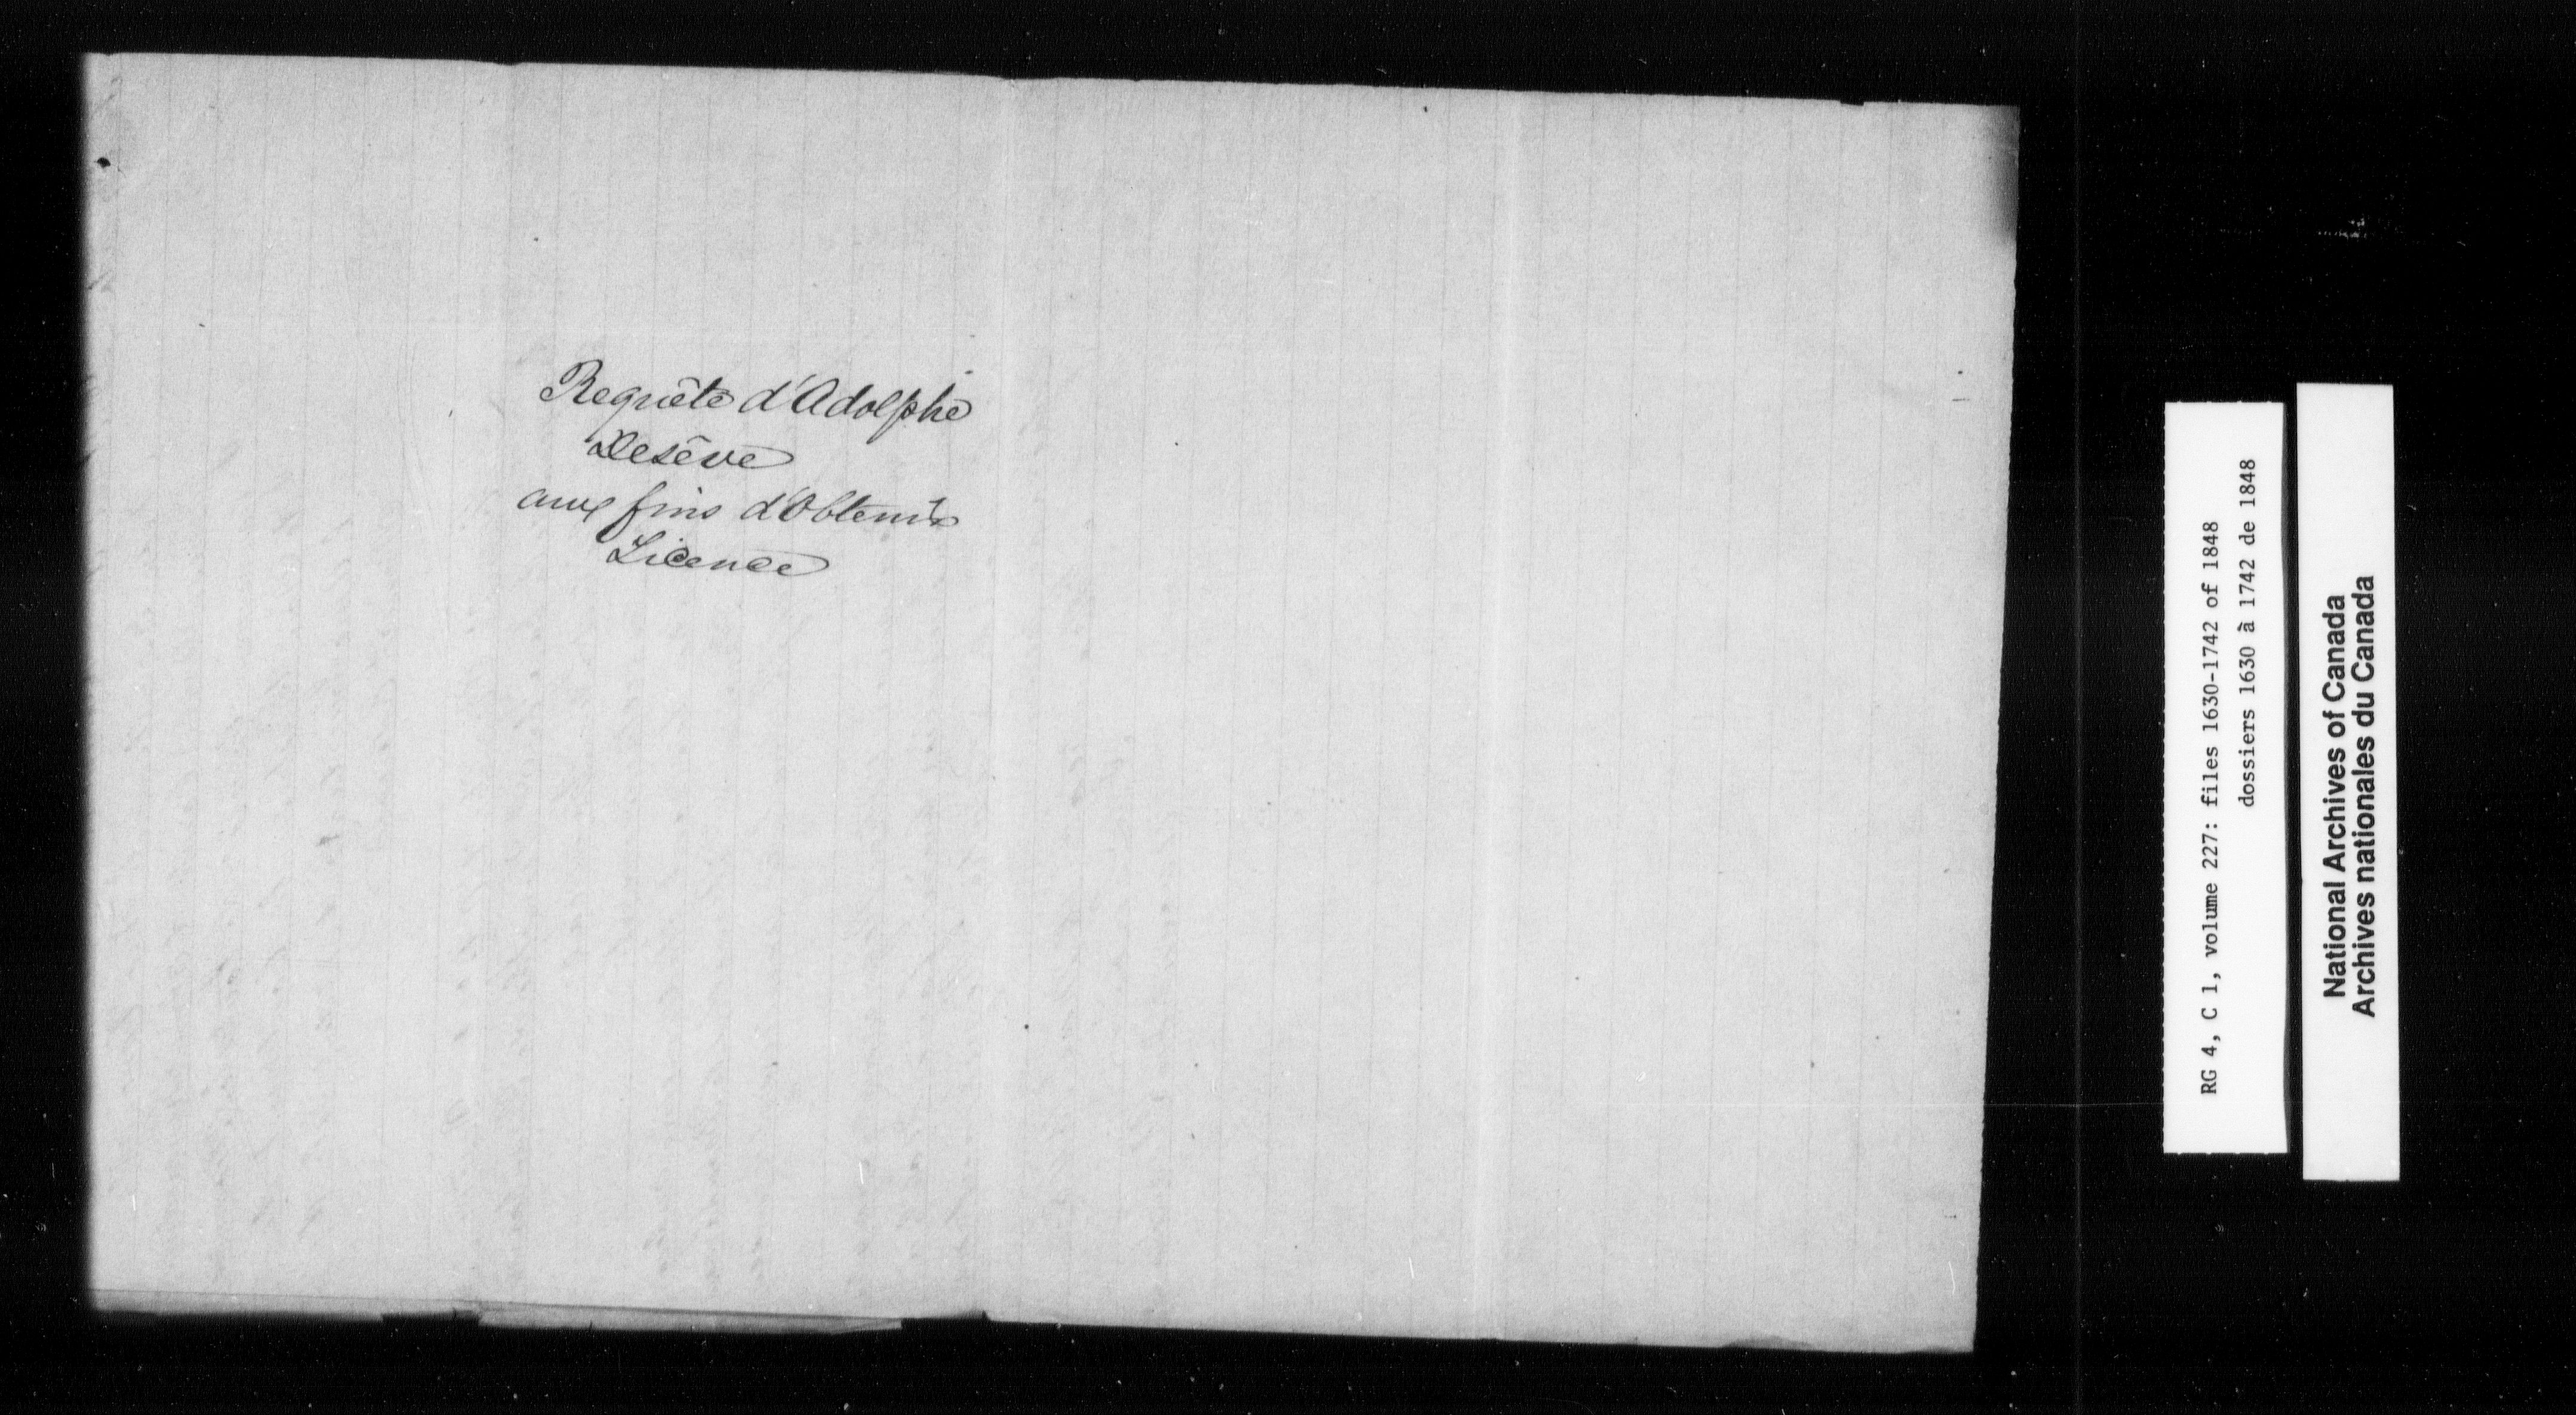 Requête d'Adolphe
Desève
aux fins d'Obtenir
Licence
RG 4, C 1, volume 227: files 1630-1742 of 1848
dossiers 1630 à 1742 de 1848
National Archives of Canada
Archives nationales du Canada